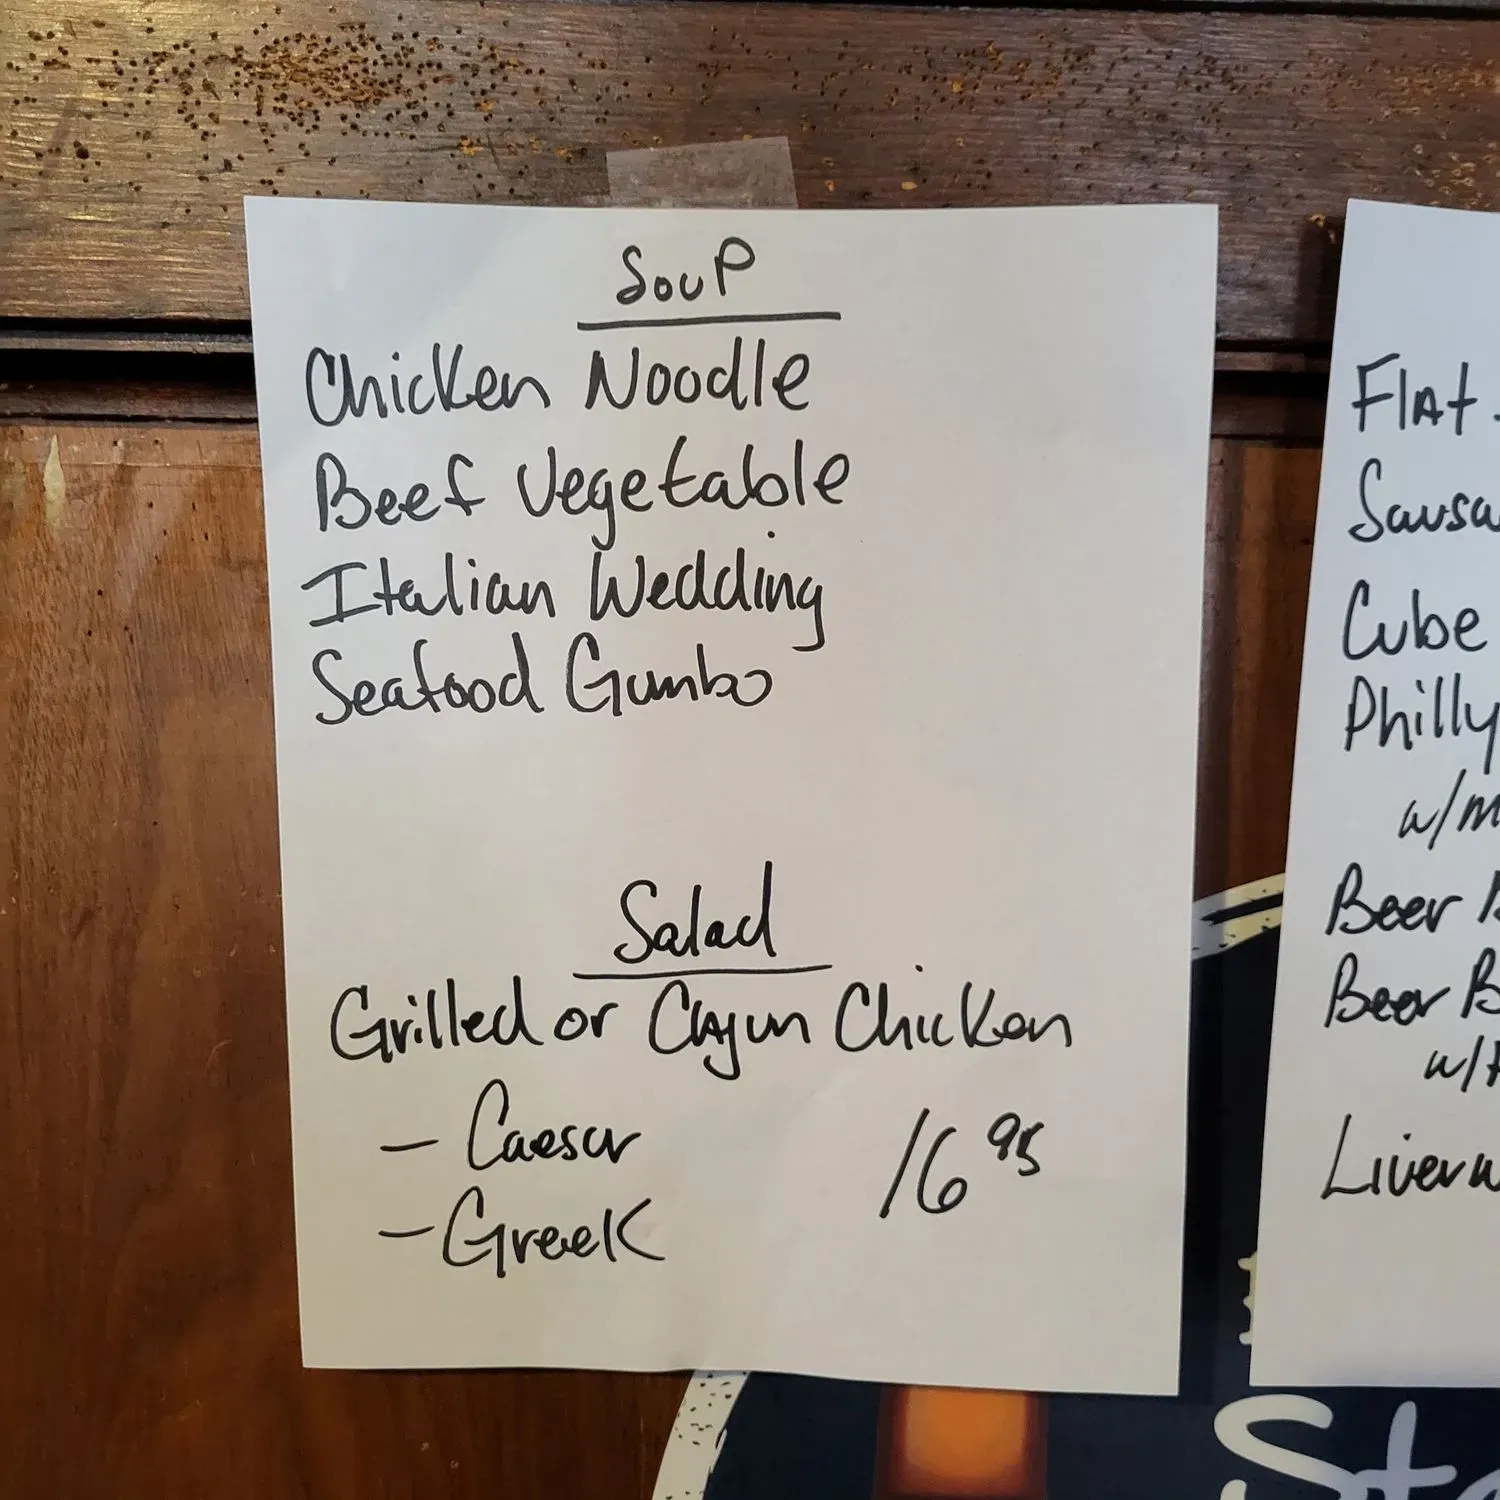 Soup
Chicken Noodle
Beef Vegetable
Italian Wedding
Seafood Gumbo
Salad
Grilled or Cajun Chicken
- Caesar
- Greek
16 95
Flat
Cube
Philly
w/
Beer
Beer
w/